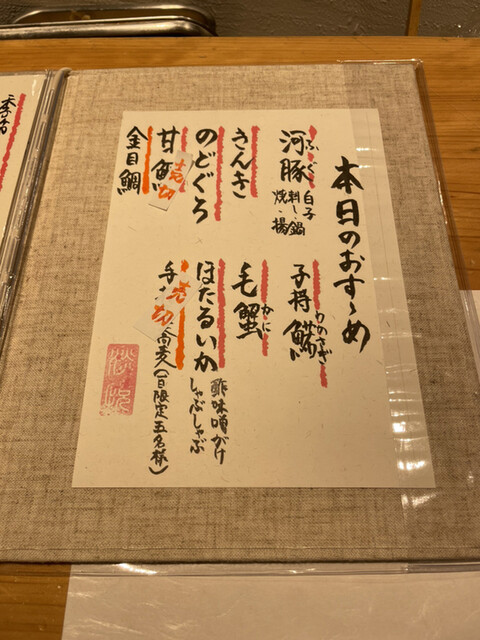 本日のおすゝめ
河豚
ふぐ
白子
刺し・鍋
焼・揚
きんき
のどぐろ
甘鯛
売切
金目鯛
子持鰙
わかさぎ
毛蟹
かに
ほたるいか
酢味噌がけ
しゃぶしゃぶ
手
売切
蕎麦(一日限定五名様)